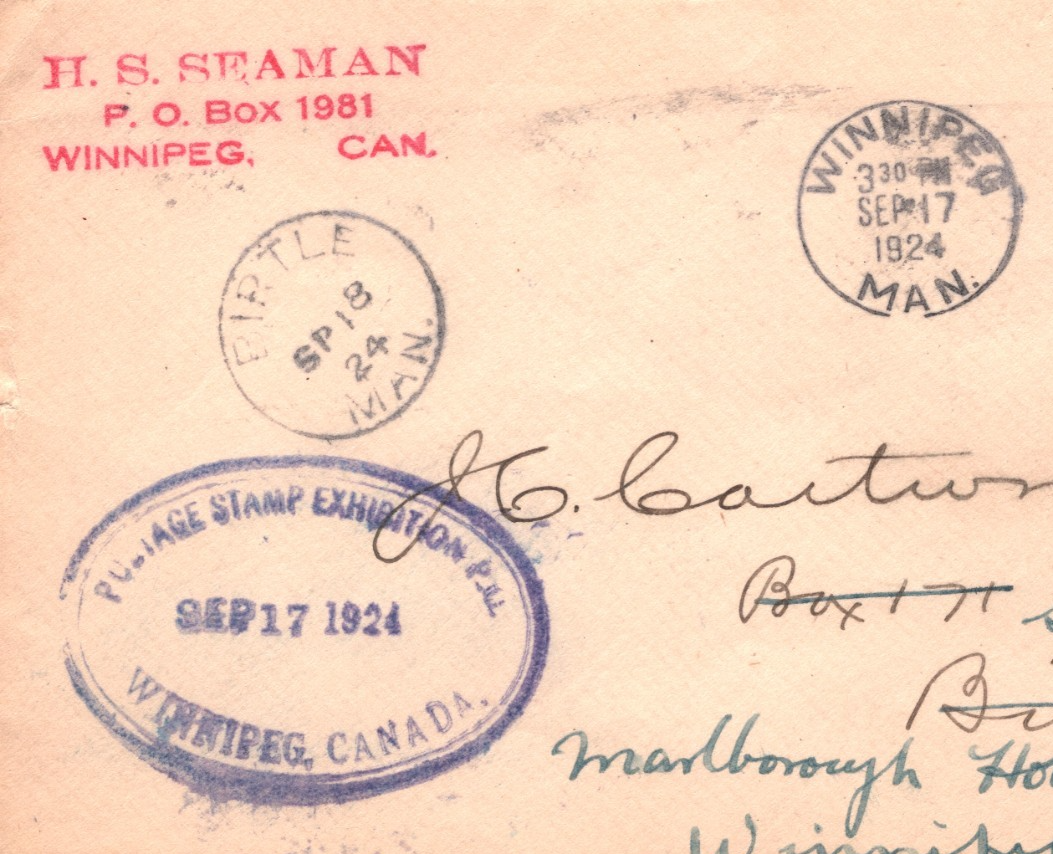 H. S. SEAMAN
P. O. Box 1981
WINNIPEG, CAN.
WINNIPEG
3 30 PM
SEP 17
1924
MAN.
BIRTLE
SP 18
24
MAN.
POSTAGE STAMP EXHIBITION
SEP 17 1924
WINNIPEG, CANADA.
Box 171
Marlborough